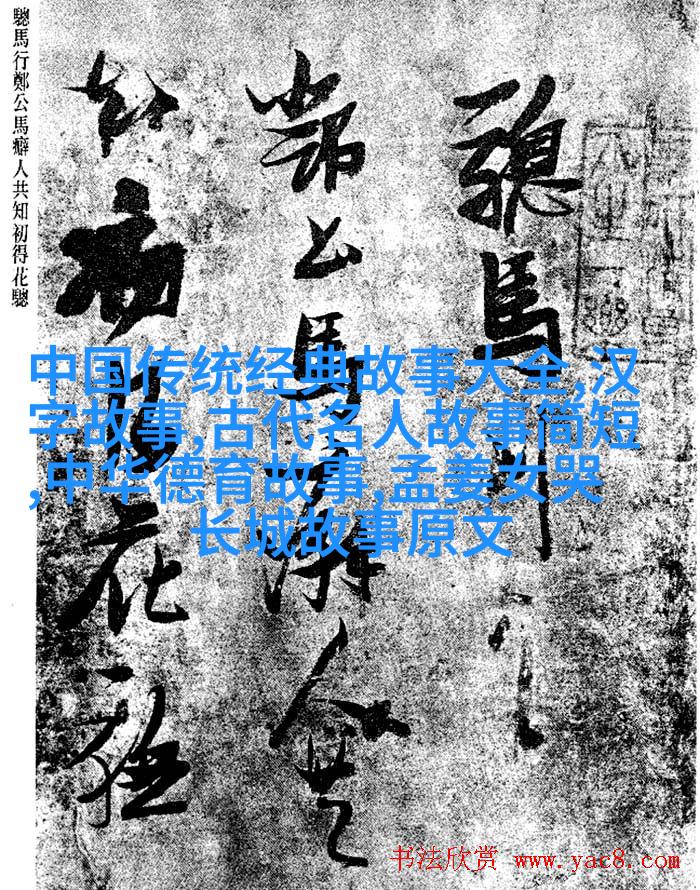 驄馬行鄭公馬癖人共知初得花驄
驄馬行
鄭公馬癖人共
知初得花驄
中国传统经典故事大全,汉
字故事,古代名人故事简短
,中华德育故事,孟姜女哭
长城故事原文
书法欣赏 www.yac8.com